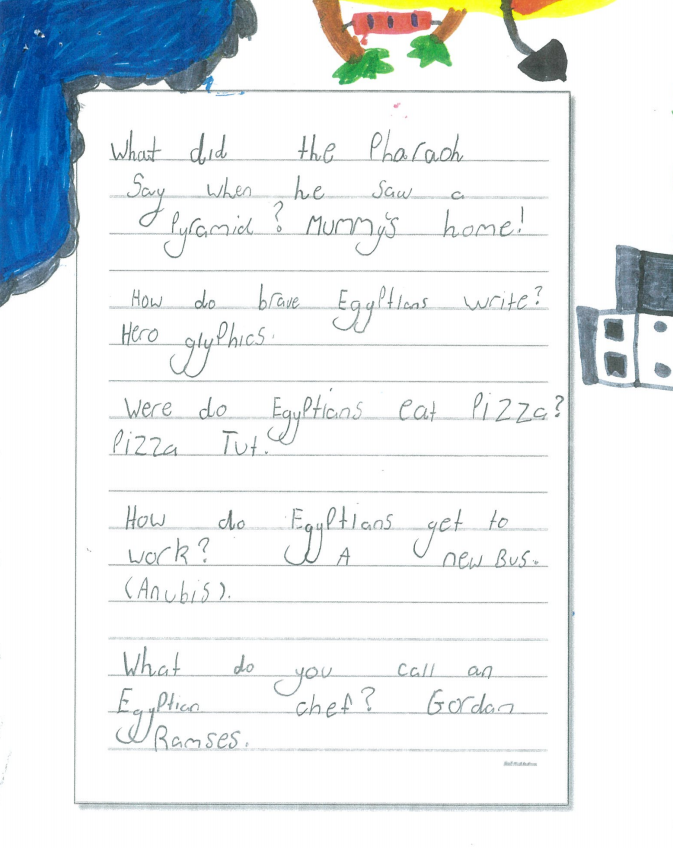 What did the Pharaoh
Say when he saw a
Pyramid? Mummy's home!
How do brave Egyptians write?
Hero glyphics.
Were do Egyptians eat Pizza?
Pizza Tut.
How do Egyptians get to
work? A new Bus.
(Anubis).
What do you call an
Egyptian chef? Gordan
Ramses.